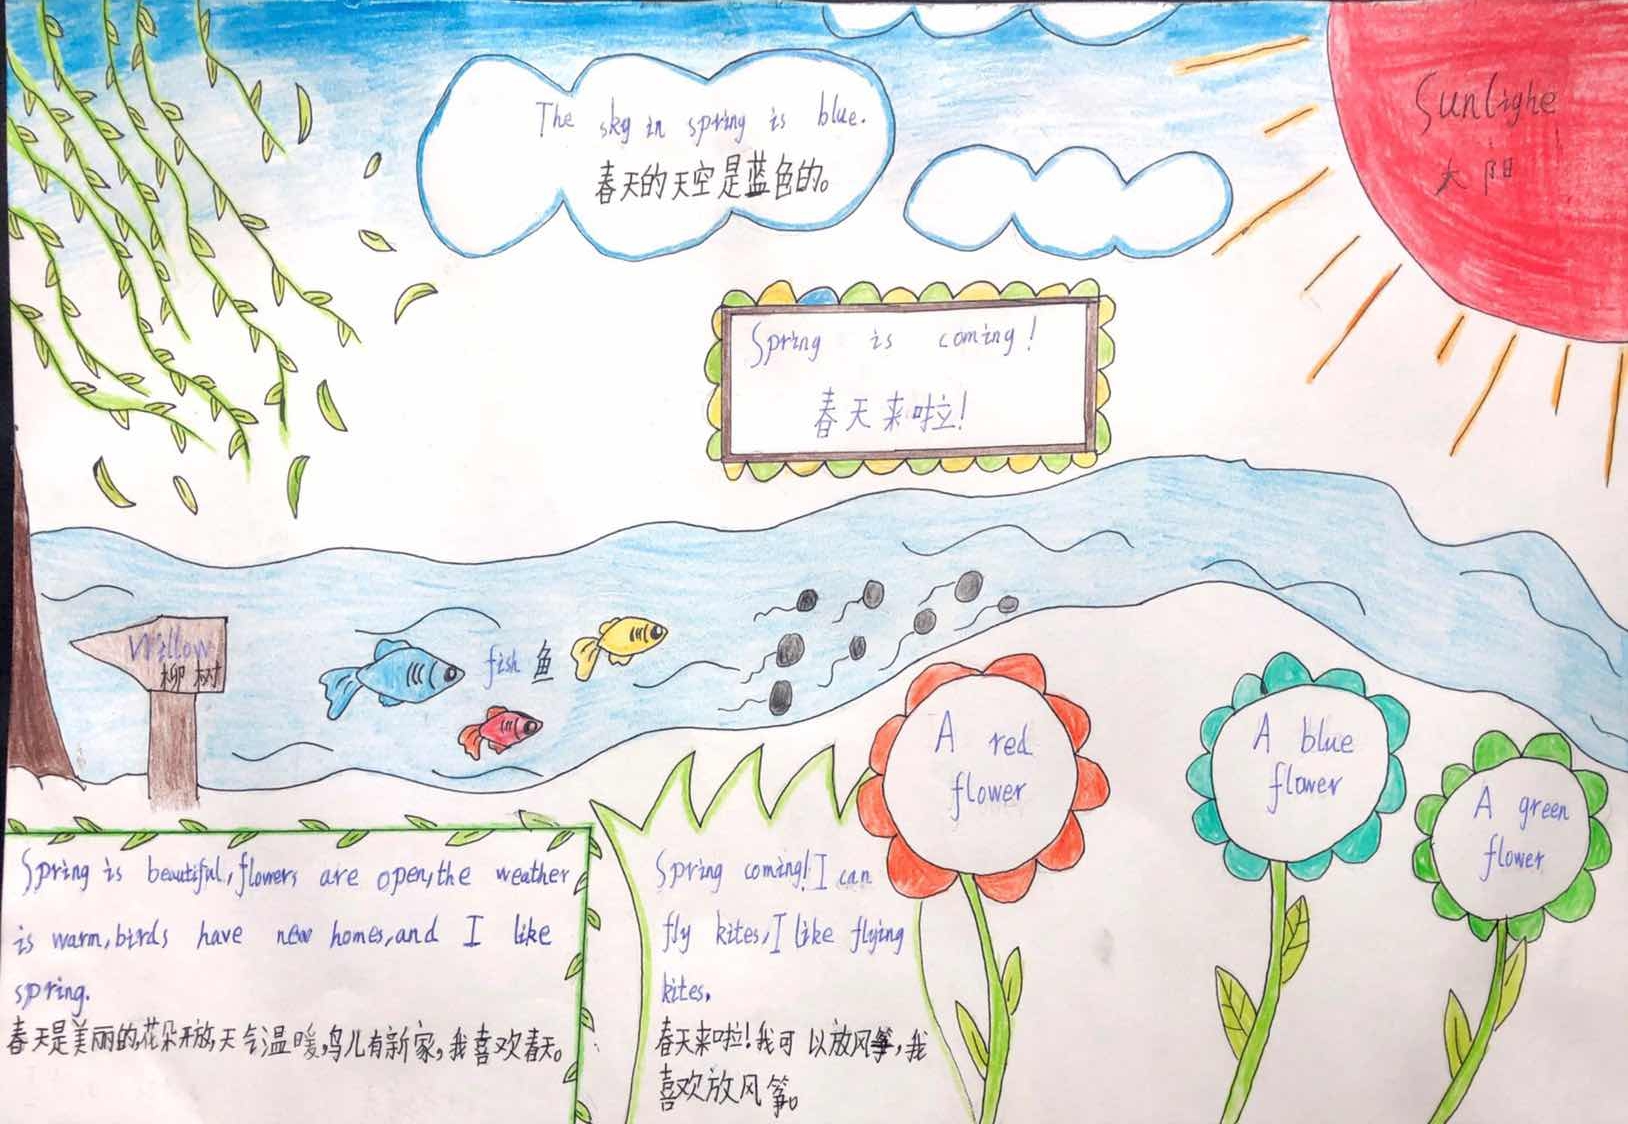 The sky in spring is blue.
春天的天空是蓝色的。
Sunlighe
太阳
Spring is coming!
春天来啦!
Willow
柳树
fish 鱼
A red
flower
A blue
flower
A green
flower
Spring is beautiful, flowers are open, the weather
is warm, birds have new homes, and I like
spring.
春天是美丽的,花朵开放,天气温暖,鸟儿有新家,我喜欢春天。
Spring coming! I can
fly kites, I like flying
kites.
春天来啦!我可以放风筝,我
喜欢放风筝。